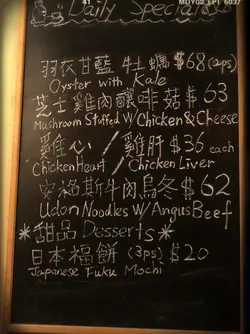 Daily Specials
羽衣甘藍 牡蠣 $68(2ps)
Oyster with Kale
芝士雞肉釀啡菇 $63
Mushroom Stuffed W/Chicken&Cheese
雞心 / 雞肝 $36 each
Chicken Heart / Chicken Liver
安格斯牛肉烏冬 $62
Udon Noodles W/Angus Beef
*甜品 Desserts*
日本福餅 (3ps) $20
Japanese Fuku Mochi